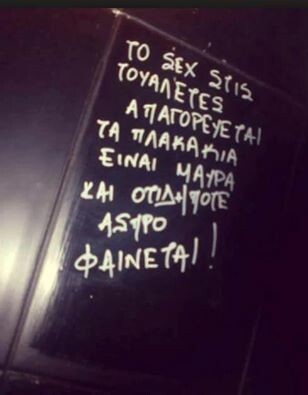 ΤΟ SEX STIS
ΤΟΥΑΛΕΤΕS
ΑΠΑΓΟΡΕΥΕΤΑΙ
ΤΑ ΠΛΑΚΑΚΙΑ
ΕΙΝΑΙ ΜΑΥΡΑ
ΚΑΙ ΟΤΙΔΗΠΟΤΕ
ΑSΠΡΟ
ΦΑΙΝΕΤΑΙ!